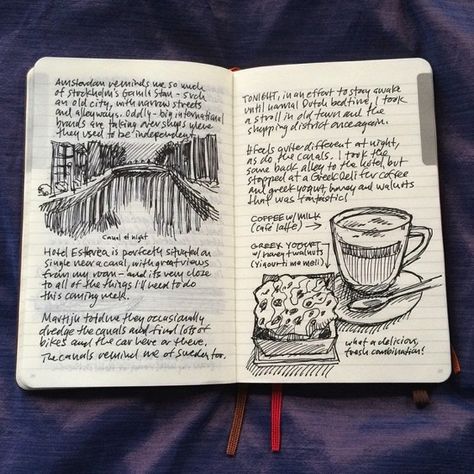 Amsterdam reminds me so much
of Stockholm's Gamla Stan - such
an old city, with narrow streets
and alleyways. Oddly - big international
brands are taking over shops where
they used to be independent.
Canal at night
Hotel Estherea is perfectly situated on
Singel near a canal, with great views
from my room - and its very close
to all of the things I'll need to do
this coming week.
Martijn told me they occasionally
dredge the canals and find lots of
bikes and the car here or there.
The canals remind me of Sweden too.
TONIGHT, in an effort to stay awake
until normal Dutch bedtime, I took
a stroll in old town and the
shopping district once again.
It feels quite different at night,
as do the canals. I took the
same back alley to the hotel but
stopped at a Greek Deli for coffee
and greek yogurt, honey and walnuts
that was fantastic!
COFFEE w/ MILK
(café latte) →
GREEK YOGURT
w/ honey + walnuts
(Yiaourti me meli)
what a delicious,
fresh combination!